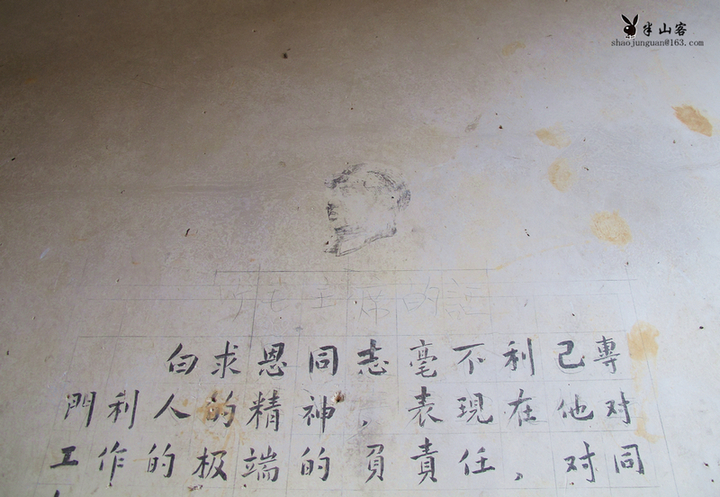 半山客
shaojunguan@163.com
主席的
白求恩同志毫不利己專
門利人的精神，表現在他对
工作的极端的負責任，对同